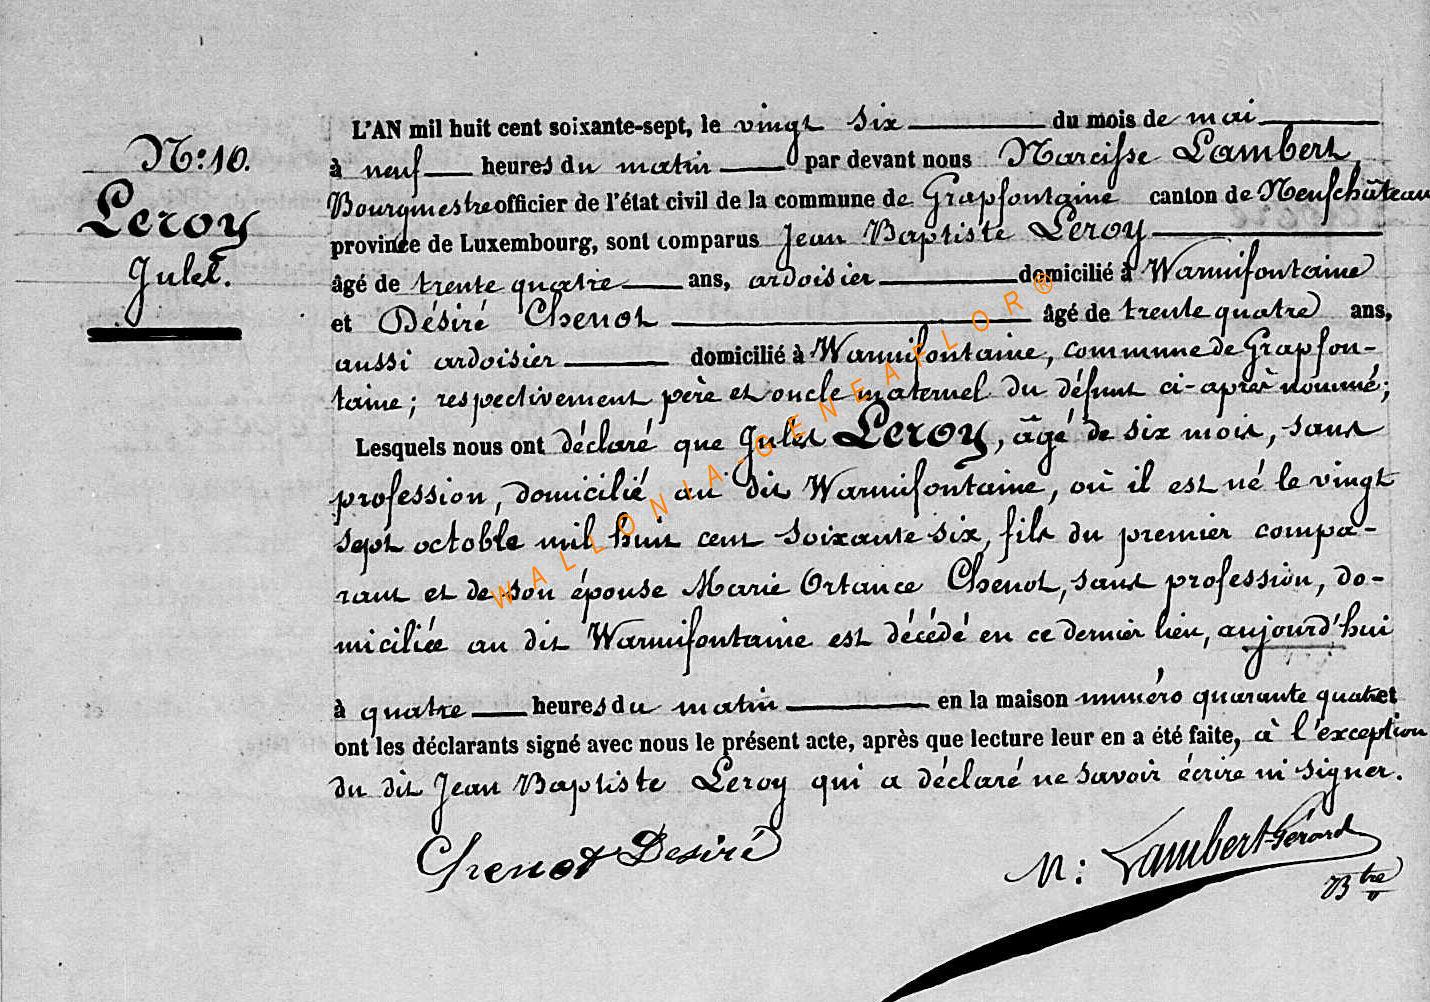 N.° 10.
Leroy
Jules.
L'AN mil huit cent soixante-sept, le vingt six du mois de mai
à neuf heures du matin par devant nous Narcisse Lambert,
Bourgmestre officier de l'état civil de la commune de Grapfontaine canton de Neufchâteau
province de Luxembourg, sont comparus Jean Baptiste Leroy
âgé de trente quatre ans, ardoisier domicilié à Warmifontaine
et Désiré Chenot âgé de trente quatre ans,
aussi ardoisier domicilié à Warmifontaine, commune de Grapfon-
taine; respectivement père et oncle maternel du défunt ci-après nommé;
Lesquels nous ont déclaré que Jules Leroy, âgé de six mois, sans
profession, domicilié au dit Warmifontaine, où il est né le vingt
sept octobre mil huit cent soixante six, fils du premier compa-
rant et de son épouse Marie Ortance Chenot, sans profession, do-
miciliée au dit Warmifontaine est décédé en ce dernier lieu, aujourd'hui
à quatre heures du matin en la maison numéro quarante quatre et
ont les déclarants signé avec nous le présent acte, après que lecture leur en a été faite, à l'exception
du dit Jean Baptiste Leroy qui a déclaré ne savoir écrire ni signer.
Chenot Desiré
N: Lambert-Gérard
Btre
WALLONIA-GENEAFLOR®